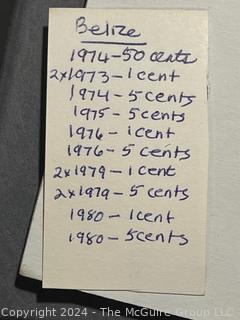 Belize
1974-50 cents
2x1973-1 cent
1974-5 cents
1975-5 cents
1976-1 cent
1976-5 cents
2x1979-1 cent
2x1979-5 cents
1980-1 cent
1980-5 cents
Copyright © 2024 - The McGuire Group LLC